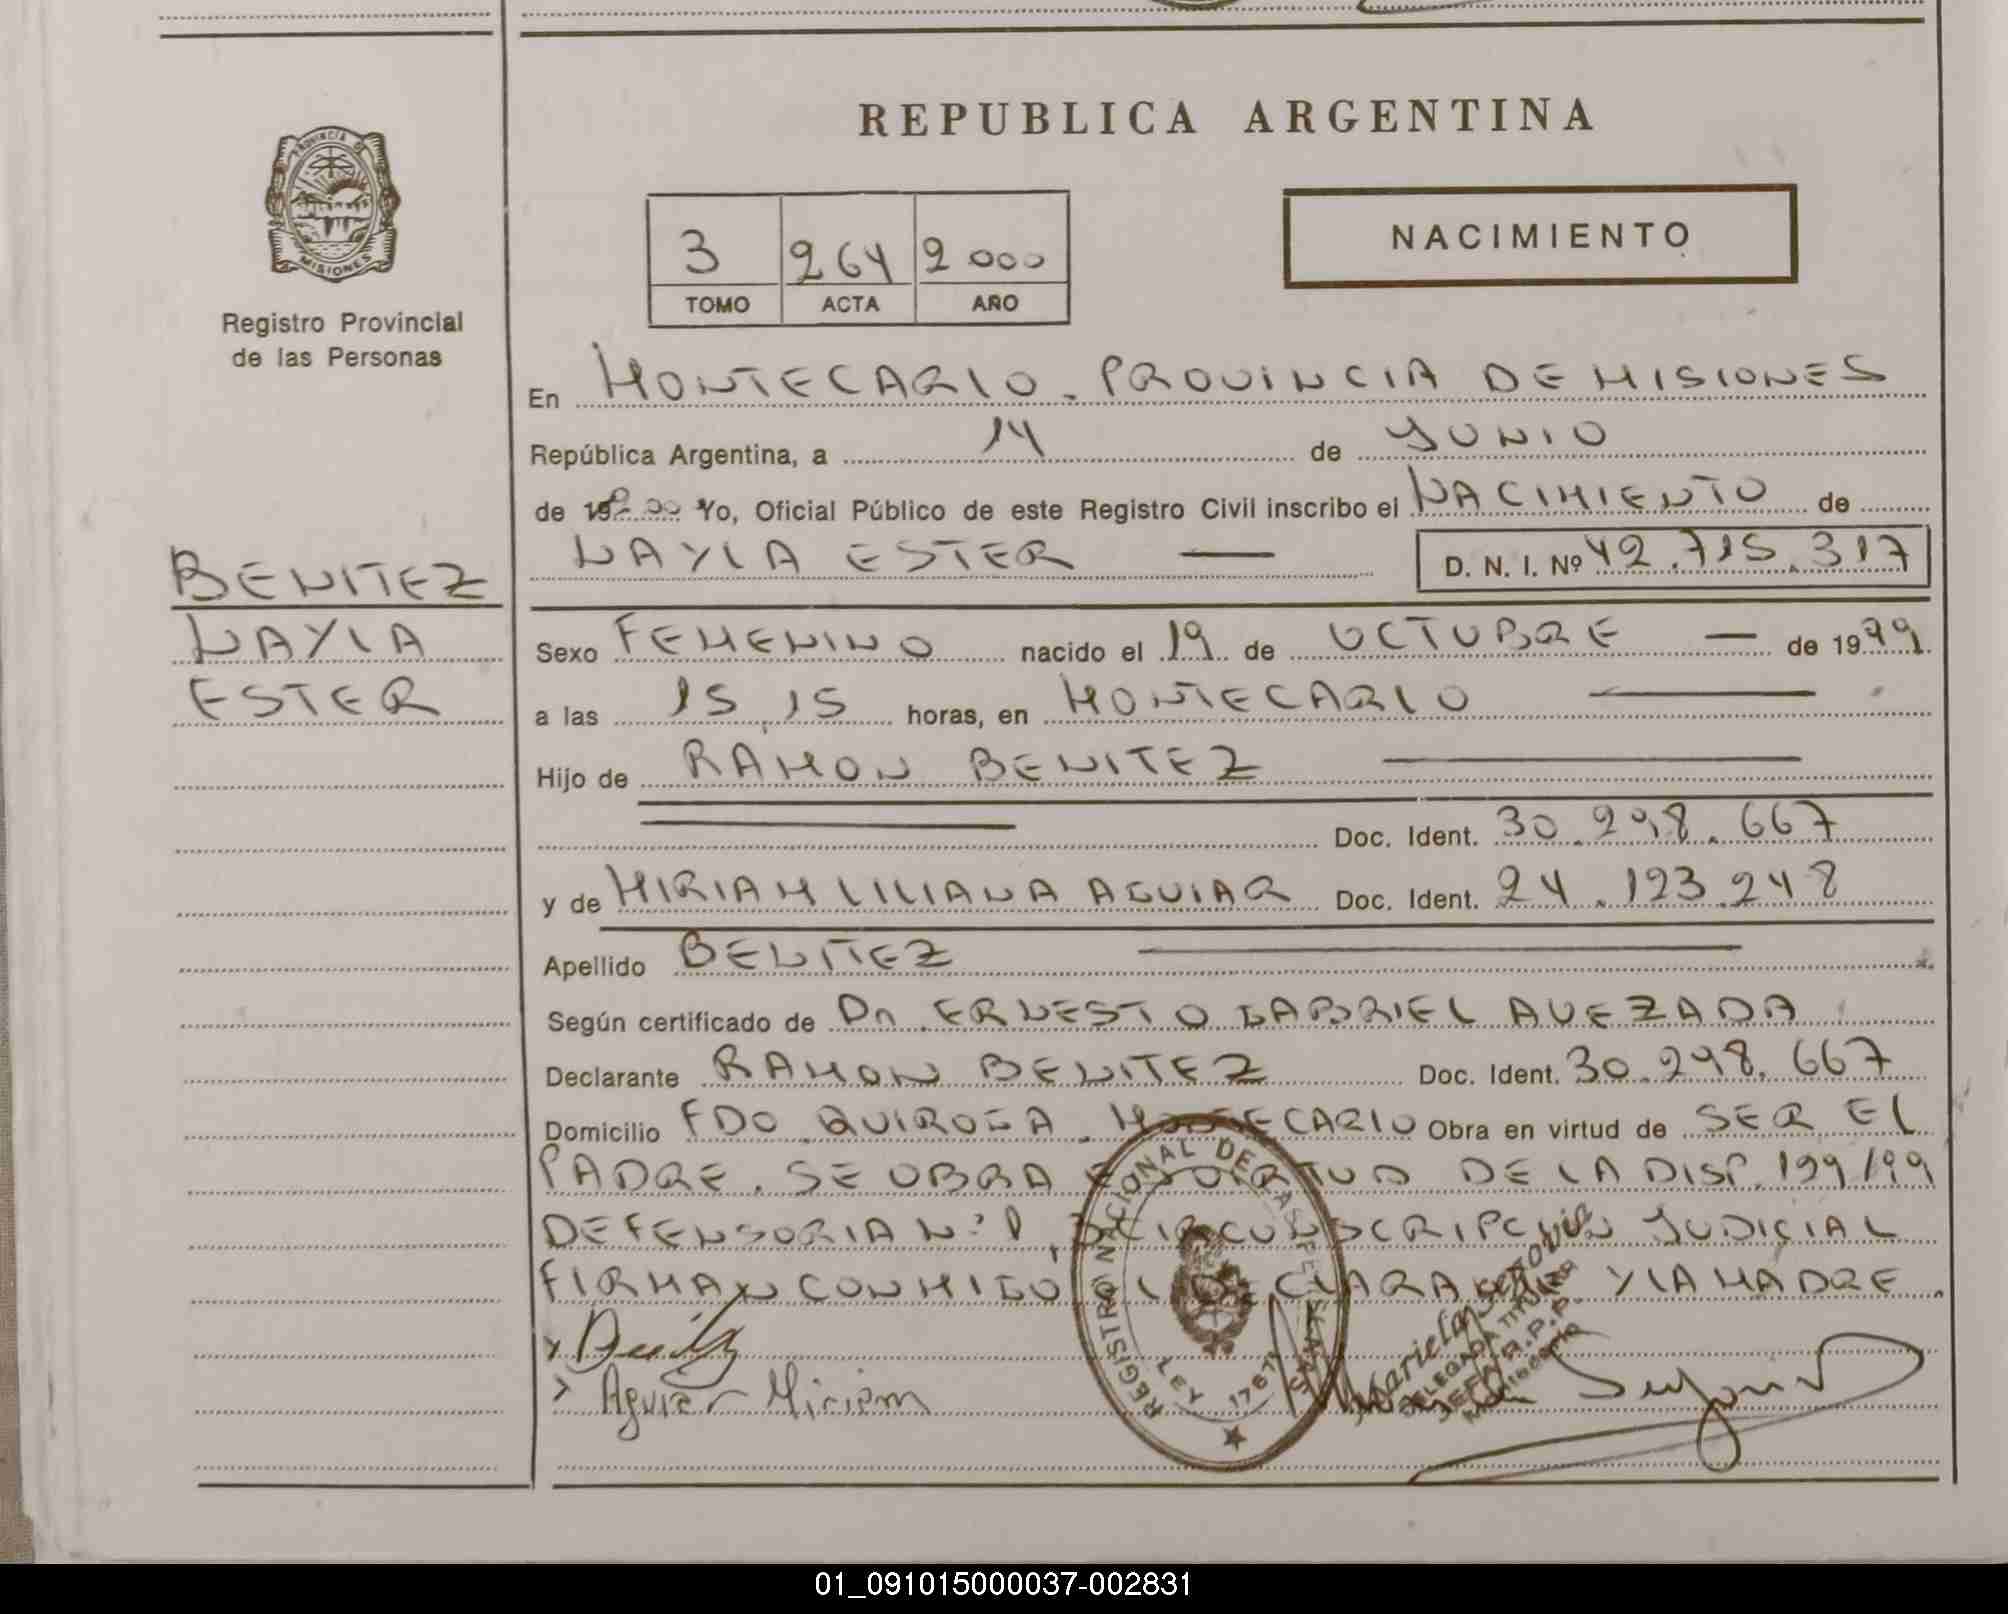 REPUBLICA ARGENTINA
PROVINCIA DE
MISIONES
Registro Provincial
de las Personas
NACIMIENTO
3 264 2000
TOMO ACTA AÑO
En MONTECARLO. PROVINCIA DE MISIONES
República Argentina, a 14 de JUNIO
de 2000 Yo, Oficial Público de este Registro Civil inscribo el NACIMIENTO de
NAYLA ESTER — D. N. I. Nº 42.715.317
BENITEZ
NAYLA
ESTER
Sexo FEMENINO nacido el 19 de OCTUBRE — de 1999.
a las 15,15 horas, en MONTECARLO
Hijo de RAMON BENITEZ
Doc. Ident. 30.298.667
y de MIRIAM LILIANA AGUIAR Doc. Ident. 24.123.248
Apellido BENITEZ
Según certificado de Dr. ERNESTO GABRIEL AVEZADA
Declarante RAMON BENITEZ Doc. Ident. 30.298.667
Domicilio FDO QUIROGA. MONTECARLO Obra en virtud de SER EL
PADRE. SE OBRA EN VIRTUD DE LA DISP. 199/99
DEFENSORIA Nº 1, CIRCUNSCRIPCION JUDICIAL
FIRMAN CONMIGO EL DECLARANTE Y LA MADRE.
REGISTRO NACIONAL DE LAS PERSONAS
LEY 17671
Mariela
DELEGADA TITULAR
JEFA R.P.P.
Montecarlo
Aguiar Miriam
01_091015000037-002831